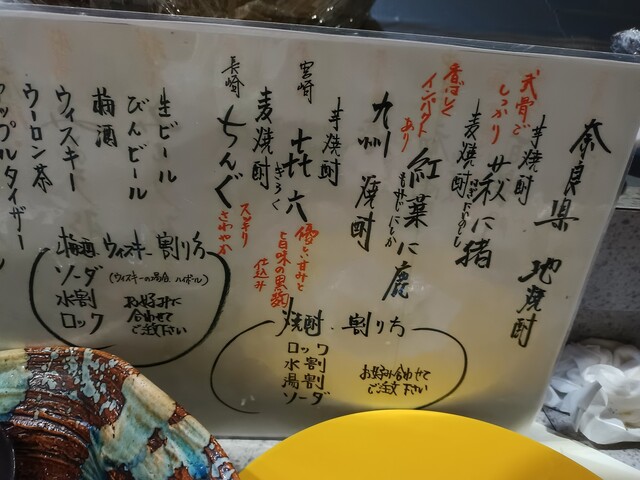 奈良県 地焼酎
芋焼酎
武骨で
しっかり
萩に猪
はぎにいのしし
麦焼酎
香ばしく
インパクト
あり
紅葉に鹿
もみじにしか
九州 焼酎
芋焼酎
宮崎
㐂六
きろく
優しい甘みと
旨味の黒麹
仕込み
麦焼酎
長崎
ちんぐ
スッキリ
さわやか
焼酎・割り方
ロック
水割
湯割
ソーダ
お好み合わせて
ご注文下さい
生ビール
びんビール
梅酒
ウィスキー
ウーロン茶
アップルタイザー
梅酒 ウィスキー 割り方
ソーダ (ウィスキーの場合 ハイボール)
水割
ロック
お好みで
合わせて
ご注文下さい